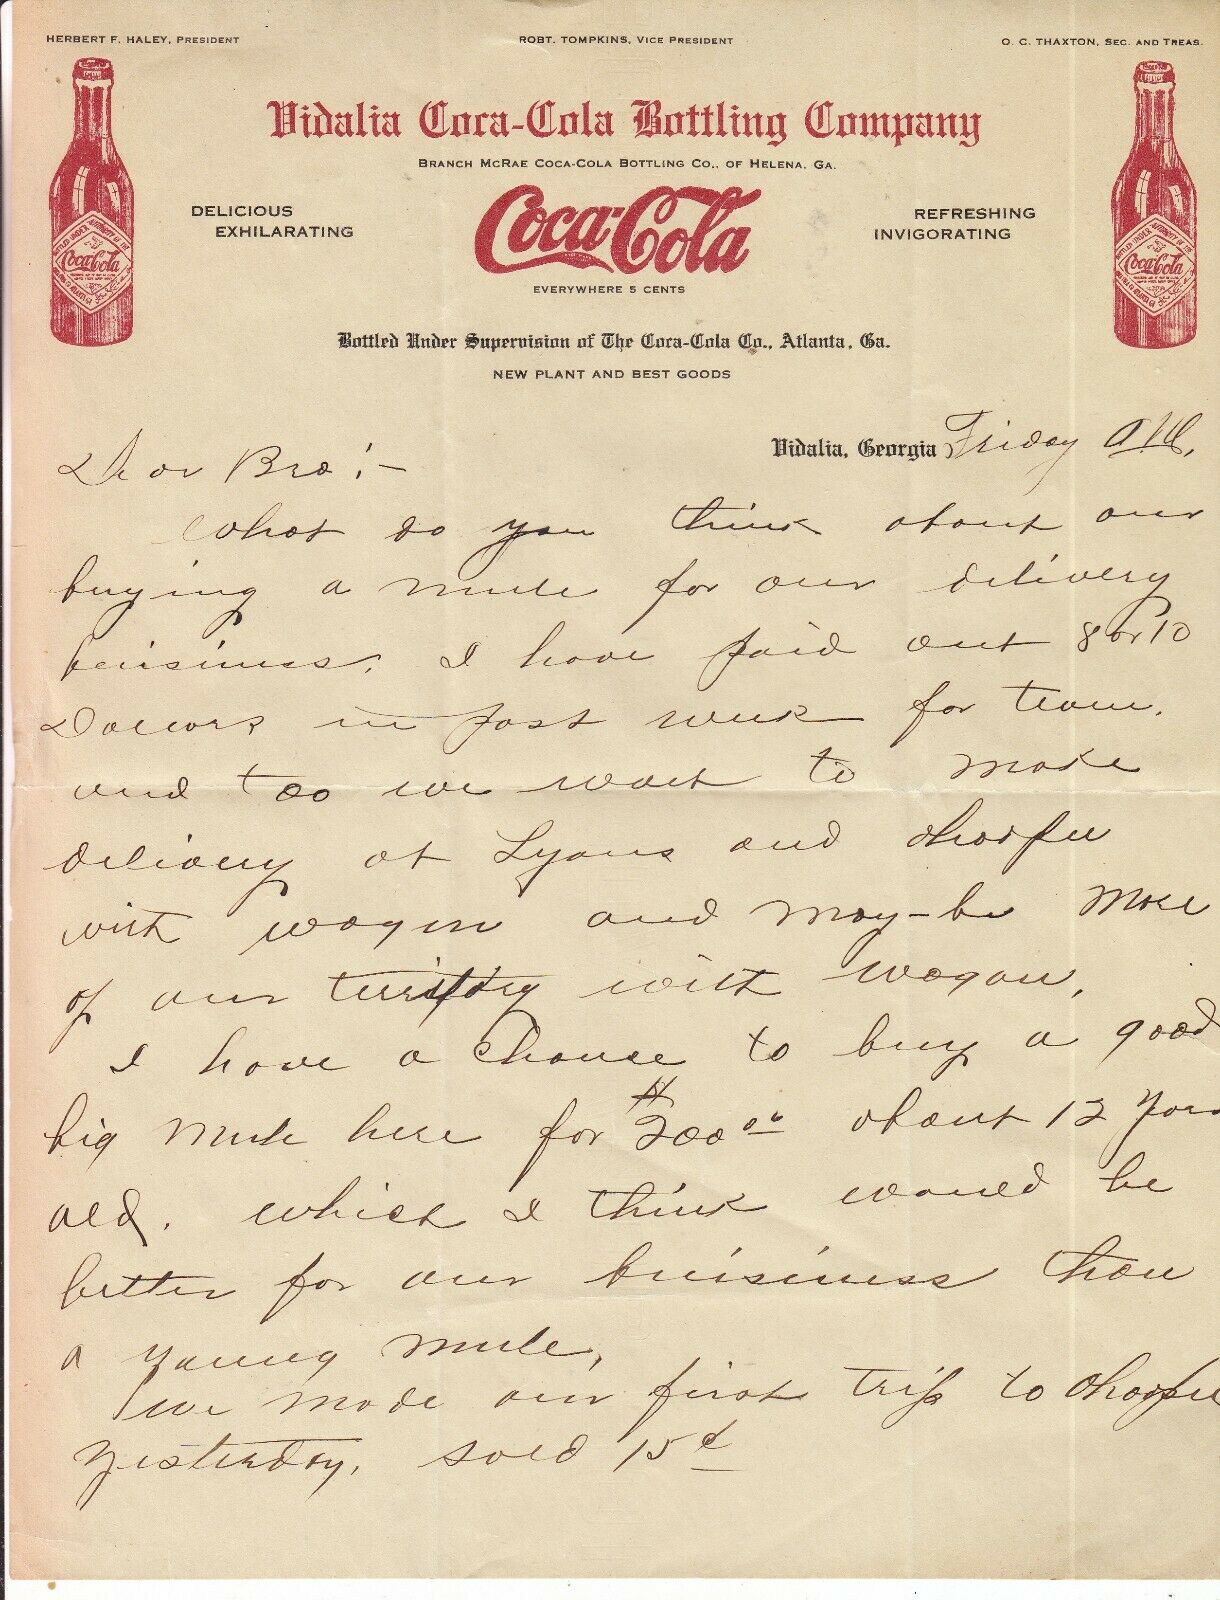 HERBERT F. HALEY, PRESIDENT
ROBT. TOMPKINS, VICE PRESIDENT
O. C. THAXTON, SEC. AND TREAS.
Vidalia Coca-Cola Bottling Company
BRANCH MCRAE COCA-COLA BOTTLING CO., OF HELENA, GA.
DELICIOUS
EXHILARATING
Coca-Cola
REFRESHING
INVIGORATING
EVERYWHERE 5 CENTS
Coca-Cola
Coca-Cola
Bottled Under Supervision of The Coca-Cola Co., Atlanta, Ga.
NEW PLANT AND BEST GOODS
Vidalia, Georgia Friday
Dear Bro:-
What do you think about our
buying a mule for our delivery
buisiness. I have paid out 8 or 10
Dollars in past week for team.
and too we want to make
delivery at Lyons and
with wagon and may-be more
of our territory with wagon.
I have a chance to buy a good
big mule here for $200 00 about 12 years
old. which I think would be
better for our buisiness than
a young mule,
we made our first trip to
yesterday, sold 15